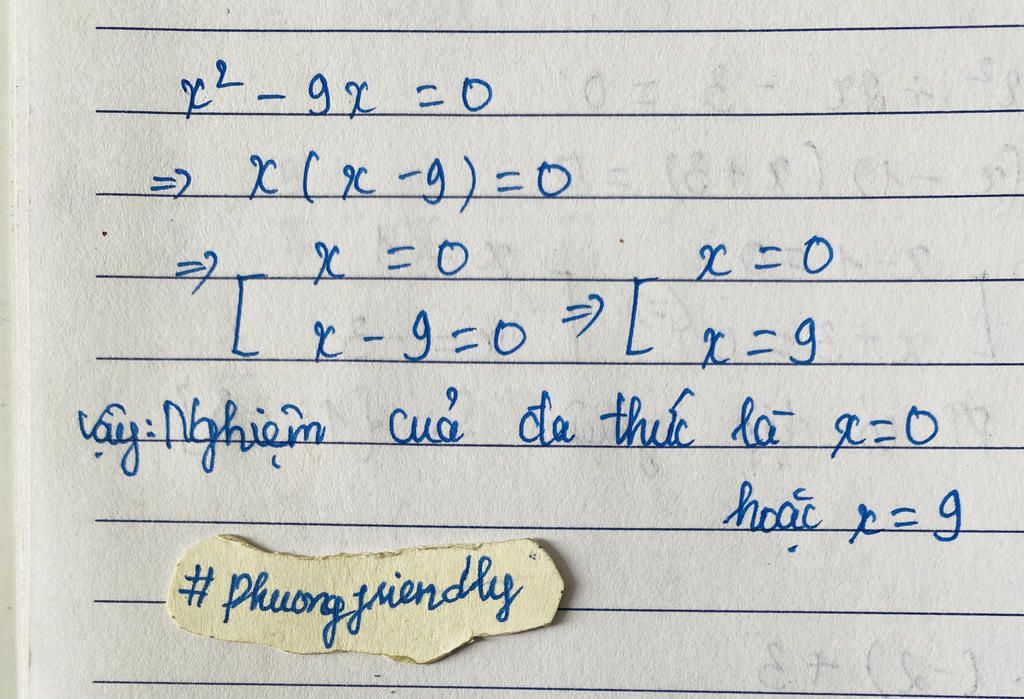 x² - 9x = 0
⇒ x(x - 9) = 0
⇒ [ x = 0 ⇒ [ x = 0
x - 9 = 0 x = 9
Vậy: Nghiệm của đa thức là x = 0
hoặc x = 9
#phuongfriendly